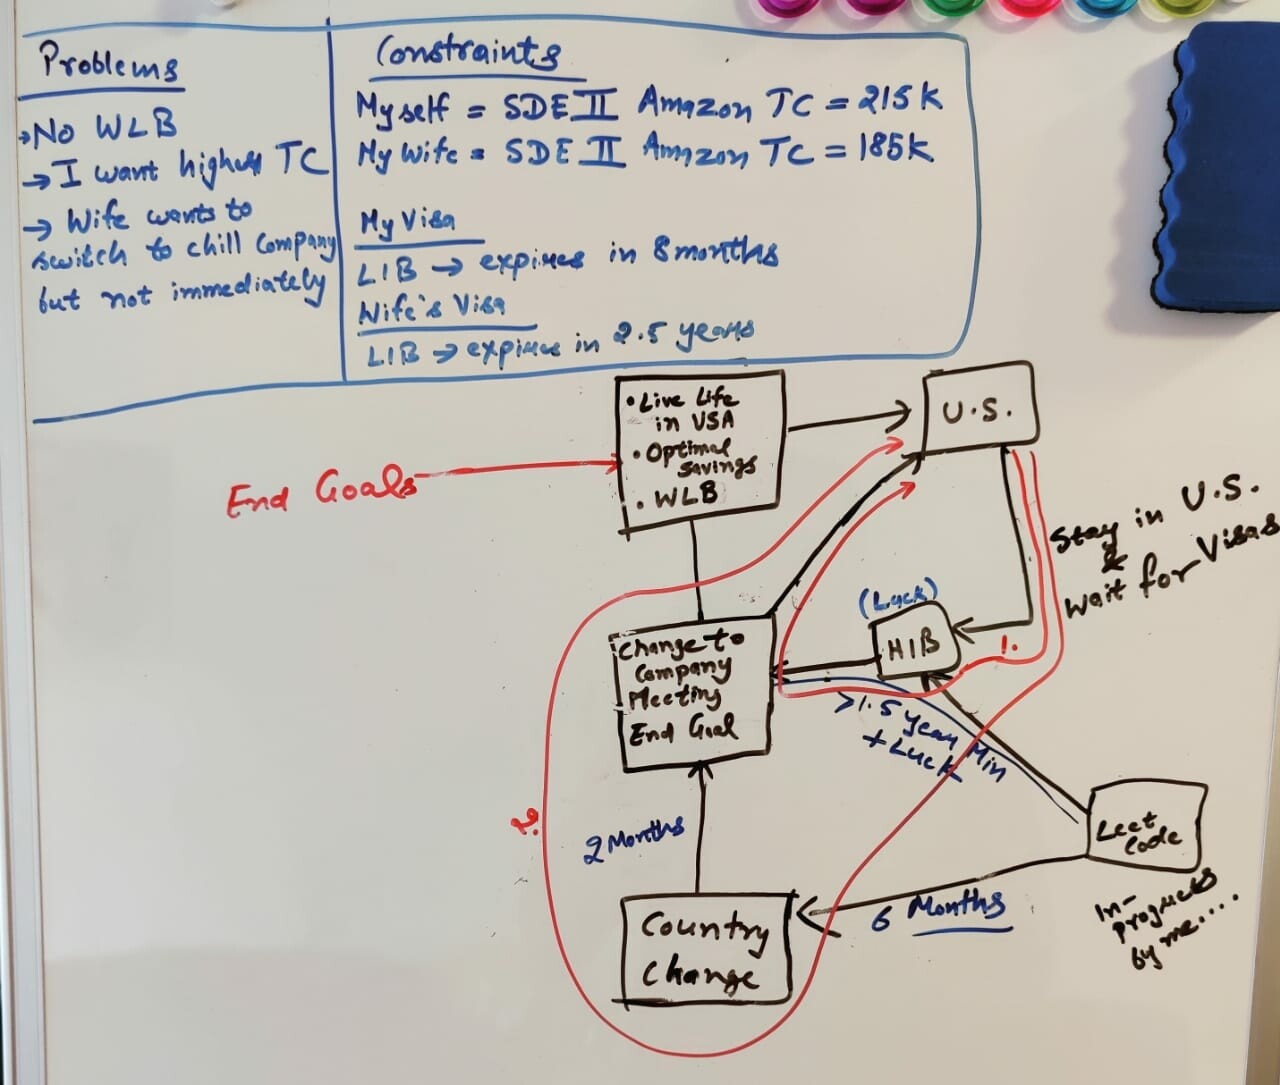 Problems
→ No WLB
→ I want highest TC
→ Wife wants to
switch to chill company
but not immediately
Constraints
Myself = SDE II Amazon TC = 215K
My Wife = SDE II Amazon TC = 185K
My Visa
L1B → expires in 8 months
Wife's Visa
L1B → expires in 2.5 years
End Goals
• Live Life
in USA
• Optimal
savings
• WLB
U.S.
Stay in U.S.
&
wait for Visas
(Luck)
H1B
1.
Change to
Company
Meeting
End Goal
>1.5 year Min
+ Luck
2.
2 Months
Leet
Code
In-
progress
by me....
6 Months
Country
Change